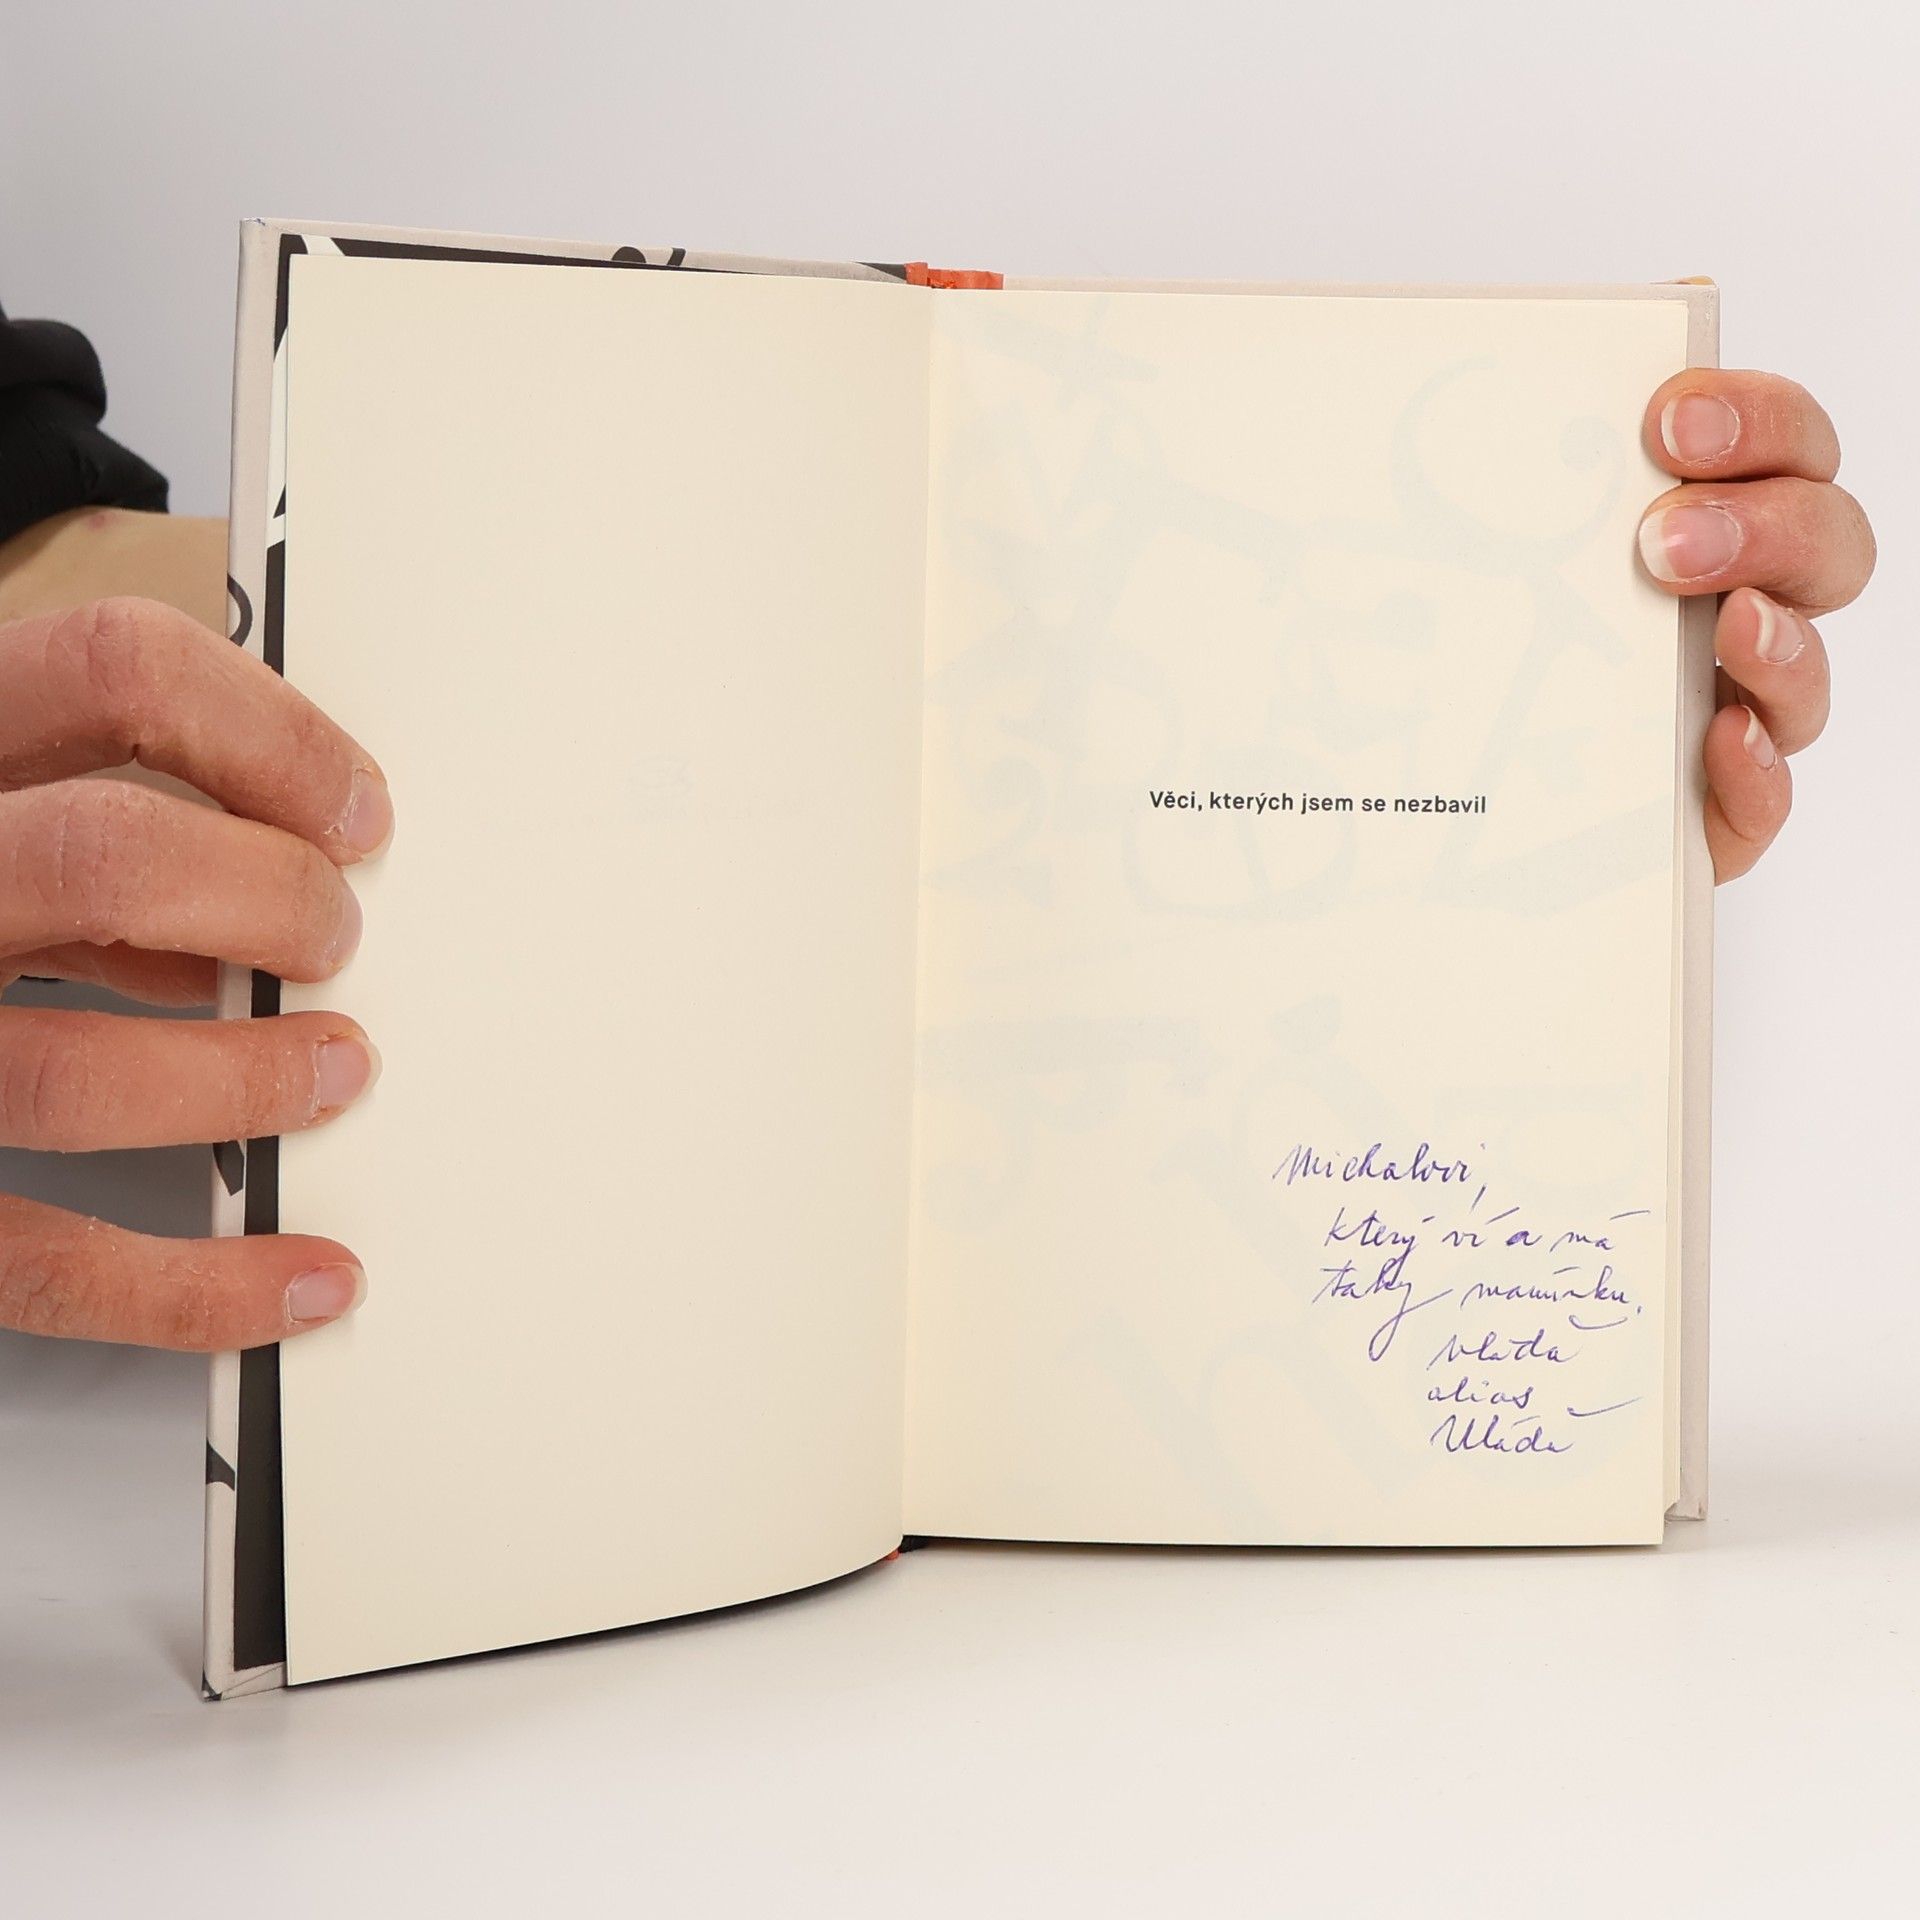 Věci, kterých jsem se nezbavil
Michalovi,
který ví a má
taky maminku.
Vláďa
alias
Vláďa